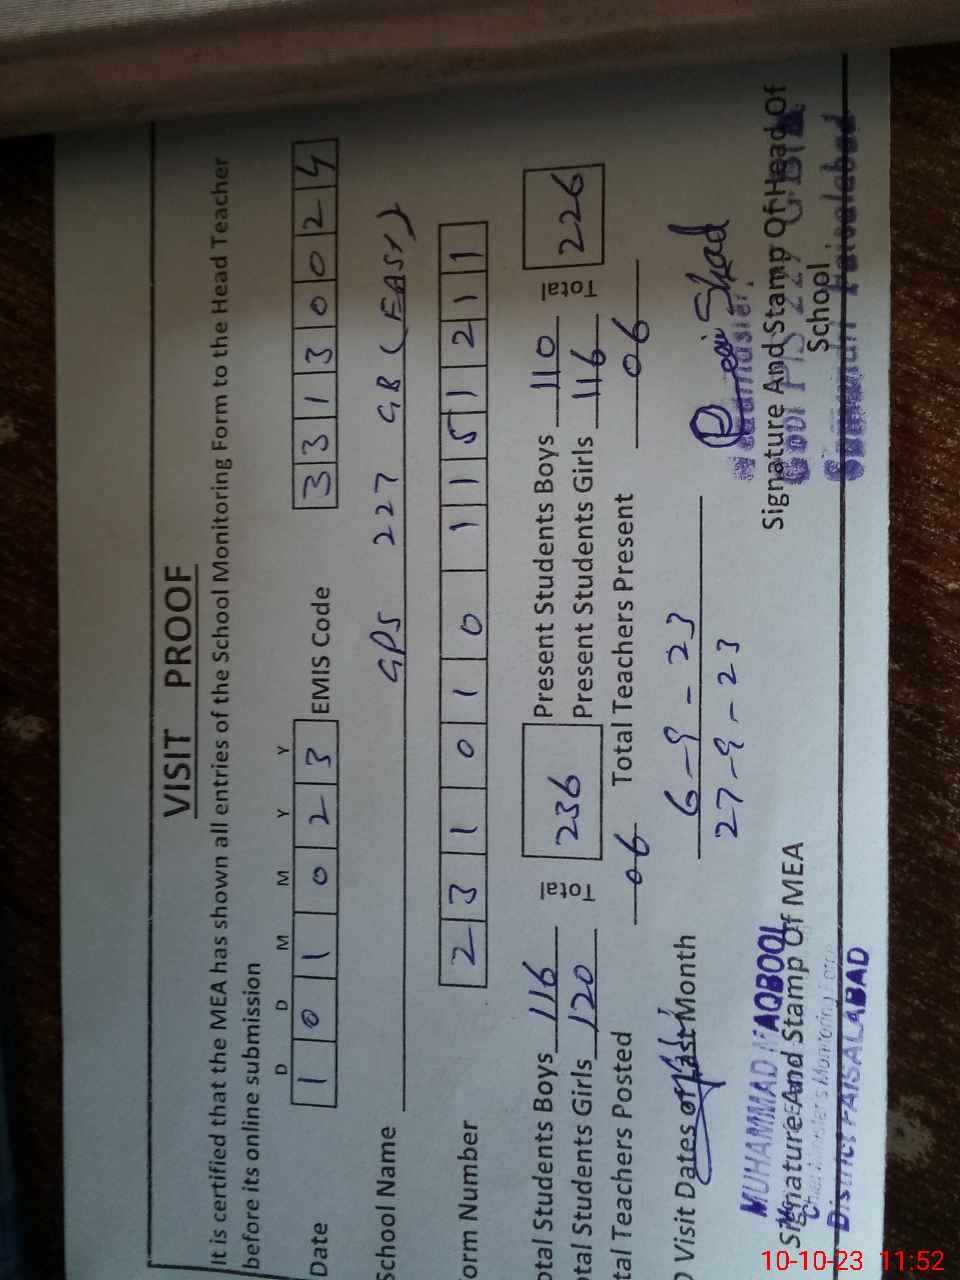 VISIT PROOF
It is certified that the MEA has shown all entries of the School Monitoring Form to the Head Teacher
before its online submission
D D M M Y Y
Date 1 0 1 0 2 3 EMIS Code 3 3 1 3 0 0 2 4
School Name GPS 227 GB (EAST)
orm Number 2 3 1 0 1 0 1 1 5 1 2 1 1
otal Students Boys 116 Total 236 Present Students Boys 110 Total 226
otal Students Girls 120 Present Students Girls 116
tal Teachers Posted 06 Total Teachers Present 06
O Visit Dates of Last Month 6-9-23
27-9-23
MUHAMMAD MAQBOOL
Signature And Stamp Of MEA
Chief Minister's Monitoring Force
District FAISALABAD
Headmaster
Signature And Stamp Of Head Of
School
Govt P/S 227 G.B
Samundri Faisalabad
10-10-23 11:52